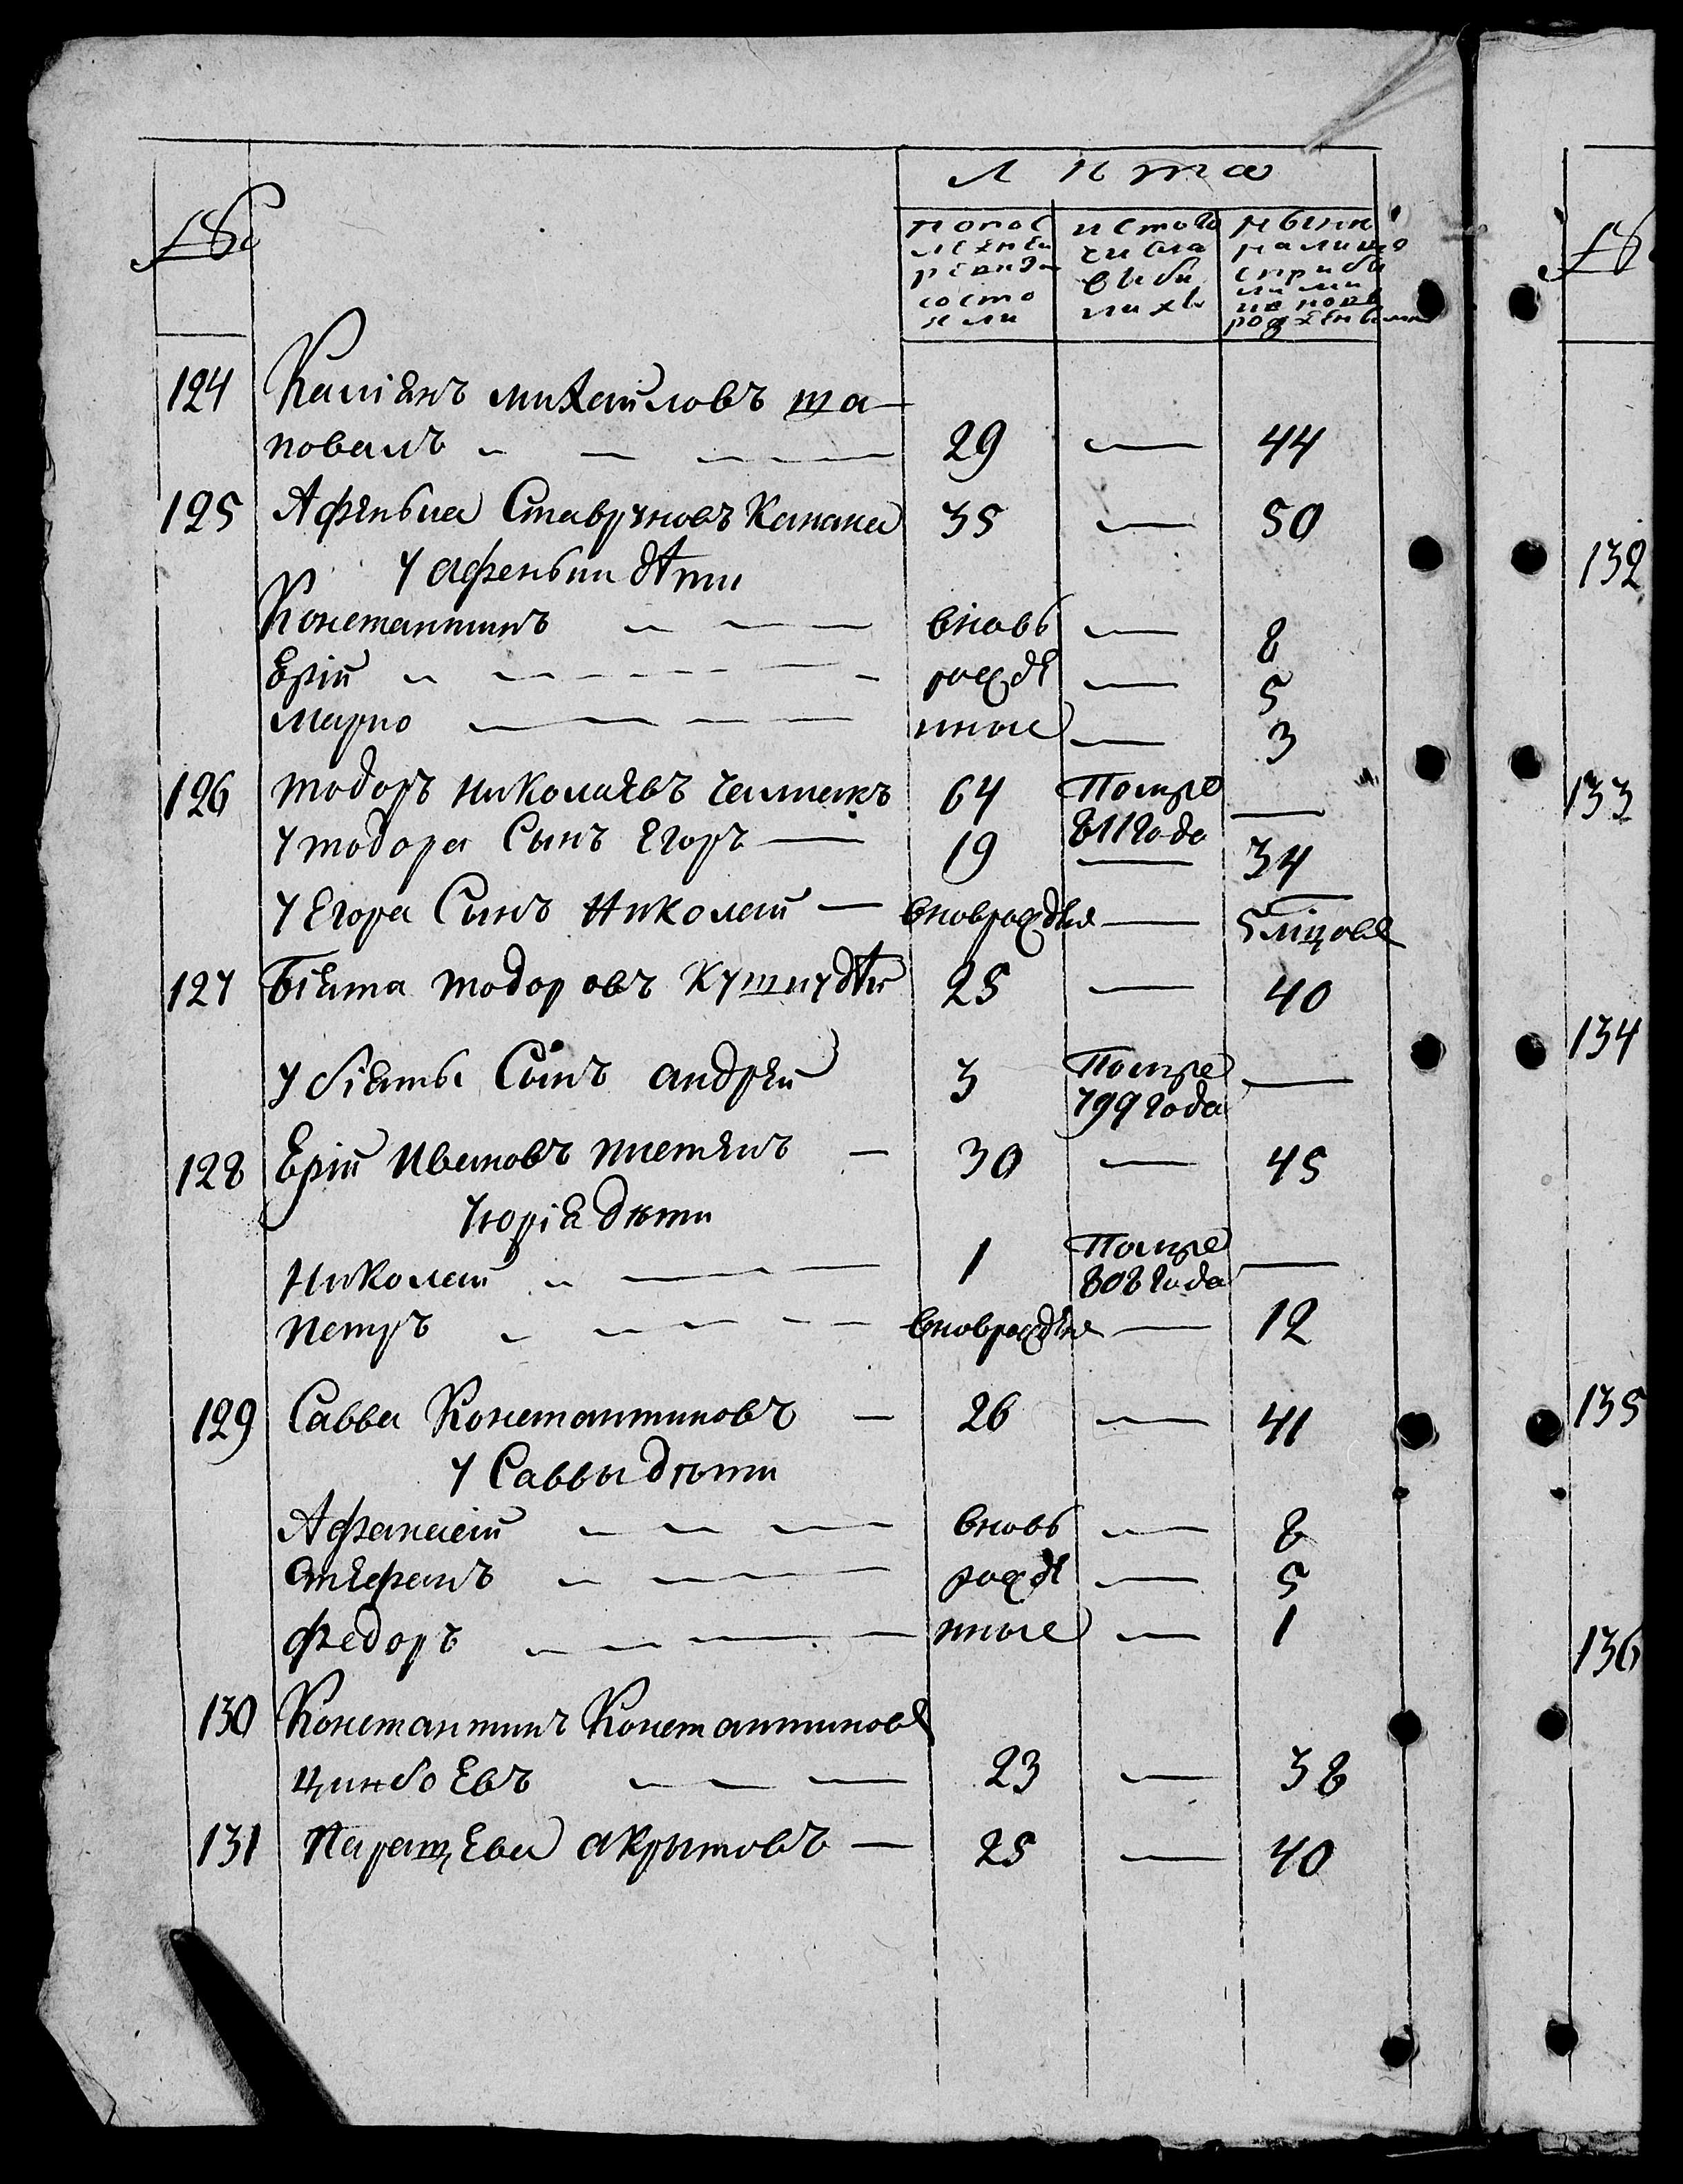 лѣта
№
по пос
леднеи
ревизи
состо
яли
ис того
числа
выбы
лихъ
нынѣ
на лицо
с прибы
лыми
и новъ
рожденными
№
124 Касіянъ михайловъ ша
повалъ 29 — 44
125 Афеньдиа Ставриновъ Канана 35 — 50
у афеньдии дѣти
Константинъ вновь — 8
Ерій рожде — 5
марко нные — 3
126 тодоръ николаевъ чалпанъ 64 Помре —
811 года
у тодора Сынъ Егоръ 19 — 34
у Егора Сынъ Николай вноврожден — 5 мцовъ
127 Біята тодоровъ Кушнудѣи 25 — 40
у біяты Сынъ андрей 3 Помре —
799 года
128 Ерій ивановъ пиетянъ — 30 — 45
у юрія дѣти
Николай 1 Помре —
808 года
петръ вноврожден — 12
129 Савва Константиновъ — 26 — 41
у Саввы дѣти
Афанасій вновь — 8
Стефанъ рожде — 5
федоръ нные — 1
130 Константинъ Константиновъ
цинбоевъ 23 — 38
131 Паращева акрытовъ — 25 — 40
132
133
134
135
136